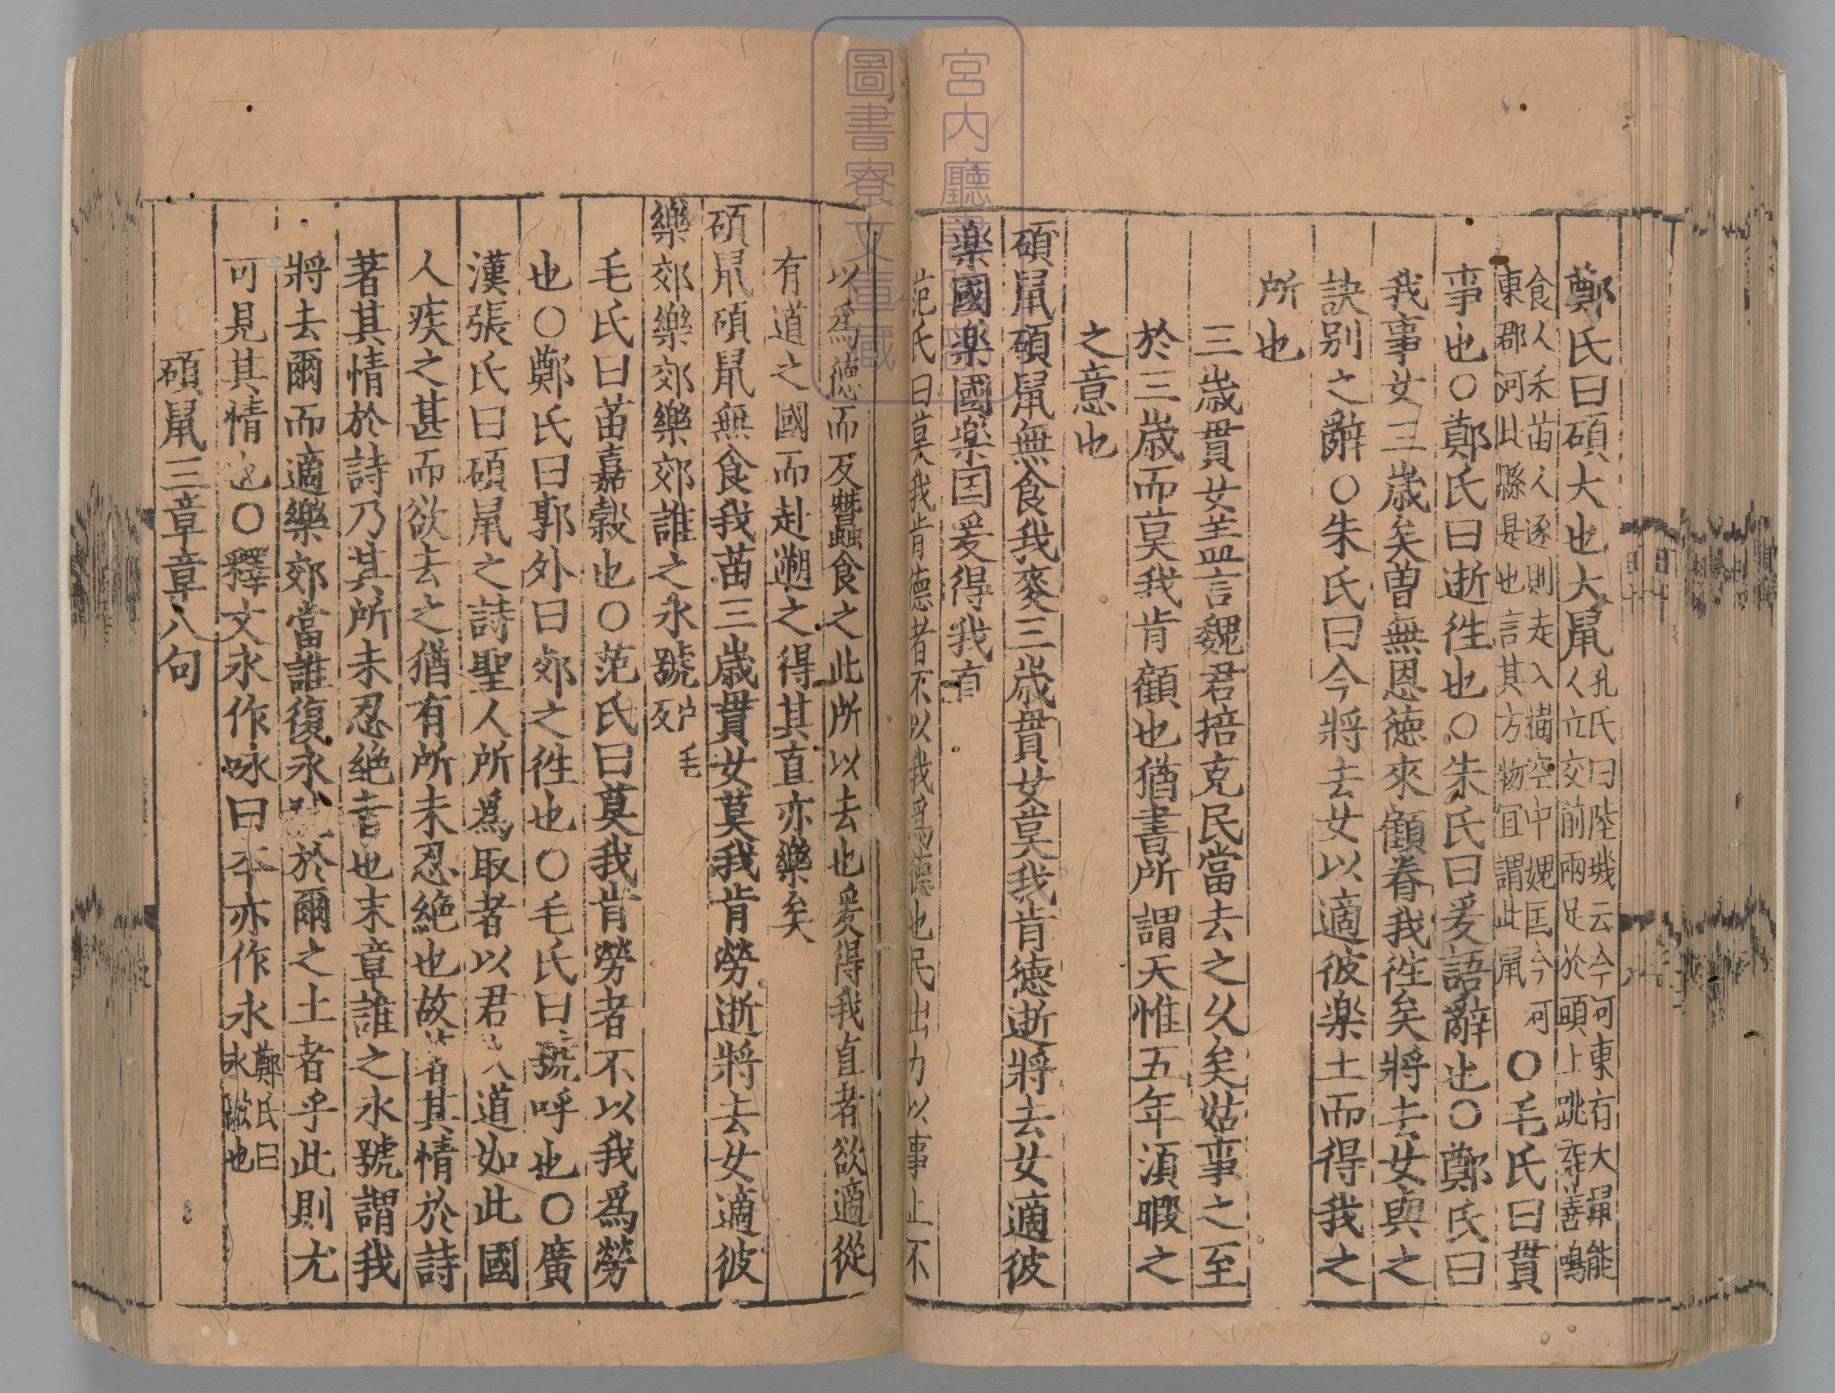 鄭氏曰碩大也大鼠孔氏曰陸璣云今河東有大鼠能
人立交前兩足於頭上跳舞善鳴
食人禾苗人逐則走入樹空中
今河
東郡河北縣是也言其方物宜謂此鼠
○毛氏曰貫
事也○鄭氏曰逝徃也○朱氏曰爰語辭也○鄭氏曰
我事女三歳矣曽無恩德來顧眷我徃矣將去女與之
訣别之辭○朱氏曰今將去女以適彼楽土而得我之
所也
三歳貫女盖言魏君掊克民當去之久矣姑事之至
於三歳而莫我肯顧也猶書所謂天惟五年湏暇之
之意也
碩鼠碩鼠無食我麥三歳貫女莫我肯德逝將去女適彼
楽國楽國楽国爰得我直
范氏曰莫我肯德者不以我爲德也民出力以事上不
以爲德而反蠶食之此所以去也爰得我直者欲適從
有道之國而赴遡之得其直亦樂矣
碩鼠碩鼠無食我苗三歳貫女莫我肯勞逝將去女適彼
樂郊樂郊樂郊誰之永號户毛
反
毛氏曰苗嘉穀也○范氏曰莫我肯勞者不以我爲勞
也○鄭氏曰郭外曰郊之徃也○毛氏曰號呼也○廣
漢張氏曰碩鼠之詩聖人所爲取者以君人道如此國
人疾之甚而欲去之猶有所未忍絶也故著其情於詩
著其情於詩乃其所未忍絶者也末章誰之永號謂我
將去爾而適樂郊當誰復永號於爾之土者乎此則尤
可見其情也○釋文永作咏曰本亦作永鄭氏曰
永歌也
碩鼠三章章八句
宮内廳
圖書寮文庫藏